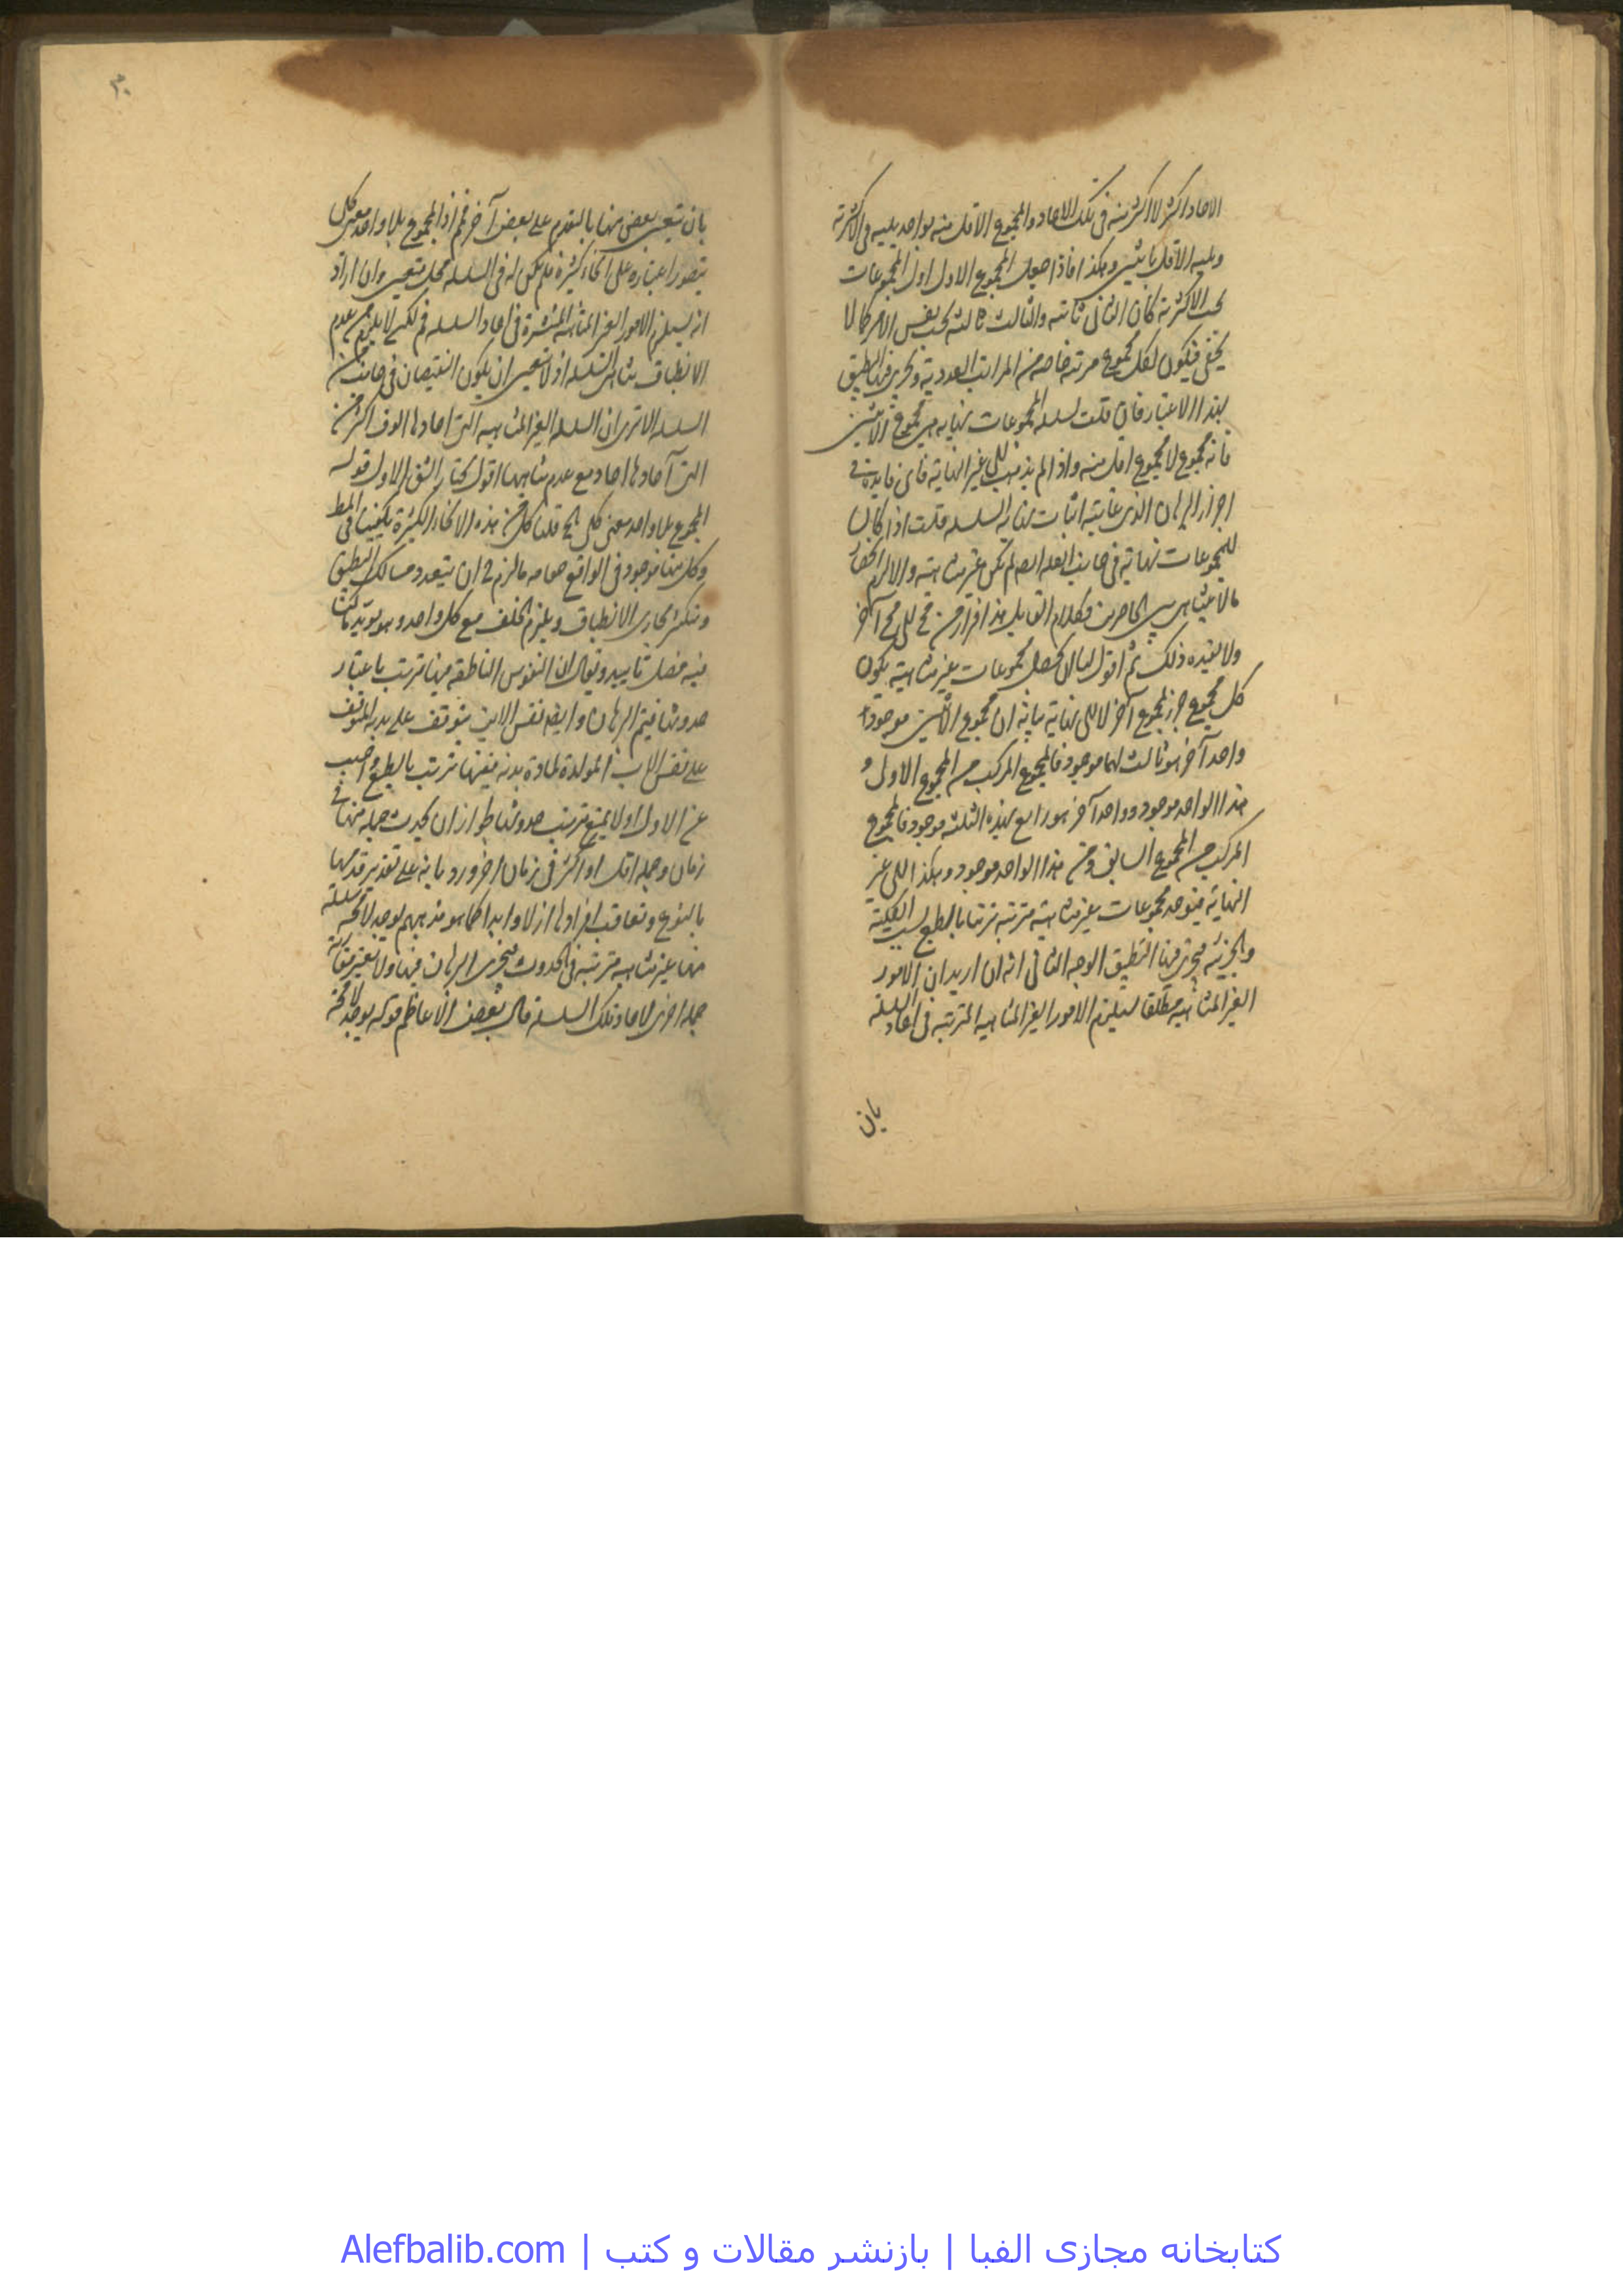 الاحاد اكثر لا اكثر منه فى تلك الاحاد والمجموع الاقل منه بواحد يليه فى الاكثرية
ويليه الاقل باثنين وهكذا فاذا جعل المجموع الاول اول المجموعات
بحسب الاكثرية كان الثانى ثانيته والثالث ثالثه بحسب نفس الامر كما لا
يخفى فيكون لكل مجموع مرتبة خاصة من المراتب العددية ويجرى فيها التطبيق
بهذا الاعتبار فان قلت لسلسلة المجموعات نهاية هى مجموع الاثنين
فانه مجموع لا مجموع اقل منه واذا لم يذهب الى غير النهاية فاى فايدة فى
اجراء البرهان الذى غايته اثبات نهاية السلسلة قلت اذا كان
للمجموعات نهاية فى جانب القلة لم تكن غير متناهية والا لزم انحصار
ما لا يتناهى بين الحاصرين فكلام القايل هذا اقرار من مح الى مح آخر
ولا يفيده ذلك ثم اقول لنا ان نحصل مجموعات غير متناهية يكون
كل مجموع جزء لمجموع آخر لا الى نهاية بيانه ان مجموع الاثنين موجود و
واحد آخر هو ثالث لهما موجود فالمجموع المركب من المجموع الاول و
هذا الواحد موجود وواحد آخر هو رابع لهذه الثلثة موجود فالمجموع
المركب من المجموع السابق ومن هذا الواحد موجود وهكذا الى غير
النهاية فيوجد مجموعات غير متناهية مترتبة ترتبا بالطبع بحسب الكلية
والجزئية فيجرى فيها التطبيق الوجه الثانى انه ان اريد ان الامور
الغير المتناهية مطلقا يستلزم الامور الغير المتناهية المترتبة فى احاد السلسلة
بان
٣٠
بان يتعين بعض منها بالتقدم على بعض آخر فمم اذ المجموع بلا واحد معين كل
يتصور اعتباره على انحاء كثيرة فلم يكن له فى السلسلة محل متعين وان اراد
انه يستلزم الامور الغير المتناهية المنتشرة فى احاد السلسلة فم لكن لا يلزم من عدم
الانطباق تناهى السلسلة اذ لا يتعين ان يكون النقصان فى جانب من
السلسلة الا ترى ان السلسلة الغير المتناهية التى احادها الوف اكثر من
التى آحادها احاد مع عدم تناهيهما اقول نختار الشق الاول قوله
المجموع بلا واحد معين كل الخ قلنا كل من هذه الانحاء الكثيرة يكفينا فى المط
وكل منها موجود فى الواقع ما لزم ح ان يتعدد مسالك التطبيق
ويتكثر مجارى الانطباق ويلزم الخلف مع كل واحد وهو يؤيد ما كنا
فيه فضل تاييد ويقال ان النفوس الناطقة فيها ترتب باعتبار
حدوثها فيتم البرهان وايضا نفس الابن يتوقف على بدنه المتوقف
على نفس الاب المولدة لمادة بدنه ففيها ترتب بالطبع واجيب
عن الاول اولا بمنع ترتب حدوثها لجواز ان يحدث جملة منها فى
زمان وجملة اقل او اكثر فى زمان اخر ورد بانه على تقدير قدمها
بالنوع وتعاقب افرادها ازلا وابدا كما هو مذهبهم يوجد لا محة سلسلة
منها غير متناهية مترتبة فى الحدوث فيجرى البرهان فيها ولا يعتبر مقارنة
جملة اخرى لاحاد تلك السلسلة قال بعض الاعاظم قوله يوجد لا محة
کتابخانه مجازی الفبا | بازنشر مقالات و کتب | Alefbalib.com